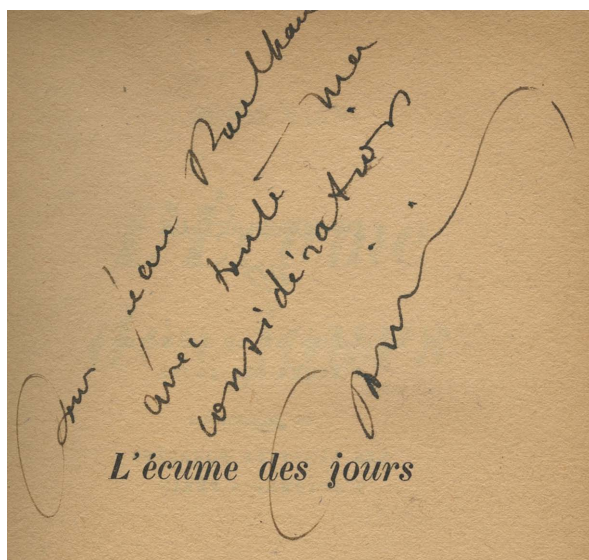 Pour Jean Paulhan
avec toute ma
considération
L'écume des jours